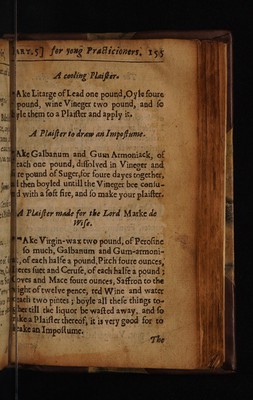 ART. 5] for yong Practicioners. 155
A cooling Plaister.
Ake Litarge of Lead one pound, Oyle foure
pound, wine Vineger two pound, and so
yle them to a Plaister and apply it.
A Plaister to draw an Impostume.
Ake Galbanum and Gum Armoniack, of
each one pound, dissolved in Vineger and
re pound of Suger, for foure dayes together,
then boyled untill the Vineger bee consu-
d with a soft fire, and so make your plaister.
A Plaister made for the Lord Marke de
Wise.
Ake Virgin-wax two pound, of Perosine
so much, Galbanum and Gum-armoni-
, of each halfe a pound, Pitch foure ounces,
eres suet and Ceruse, of each halfe a pound;
oves and Mace foure ounces, Saffron to the
ight of twelve pence, red Wine and water
each two pintes; boyle all these things to-
her till the liquor be wasted away, and so
ke a Plaister thereof, it is very good for to
eake an Impostume.
The